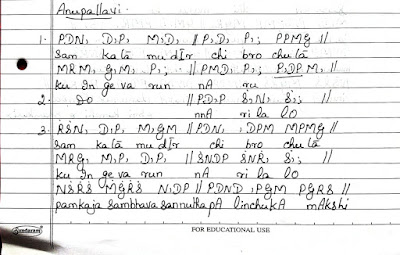 Anupallavi.
1. PDN, D,P, M,D, || P,D, P,; PPMG ||
Sam ka tā mu dIr chi bro chu tā
MRM, G,M, P,; || PMD, P,; P,DPM, ||
ku In ge va run nA ru
2. Do || P,D,P S,N, S,; ||
nnA ri la lo
3. RSN, D,P, M,GM || PDN, ,DPM MPMG ||
Sam ka tā mu dIr chi bro chu tā
MRG, M,P, D,P, || SNDP SNR, S,; ||
ku In ge va run nA ri la lo
NSRS MGRS N,DP || PDND ,PGM PGRS ||
pamkaja sambhava sannutha pA linchu kA mAkshi
Sundaram
FOR EDUCATIONAL USE